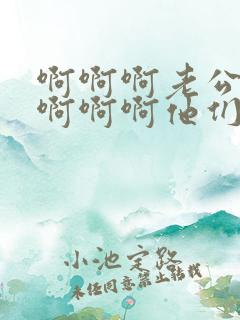 啊啊啊老公
啊啊啊他们
小池定路
未经同意禁止转载